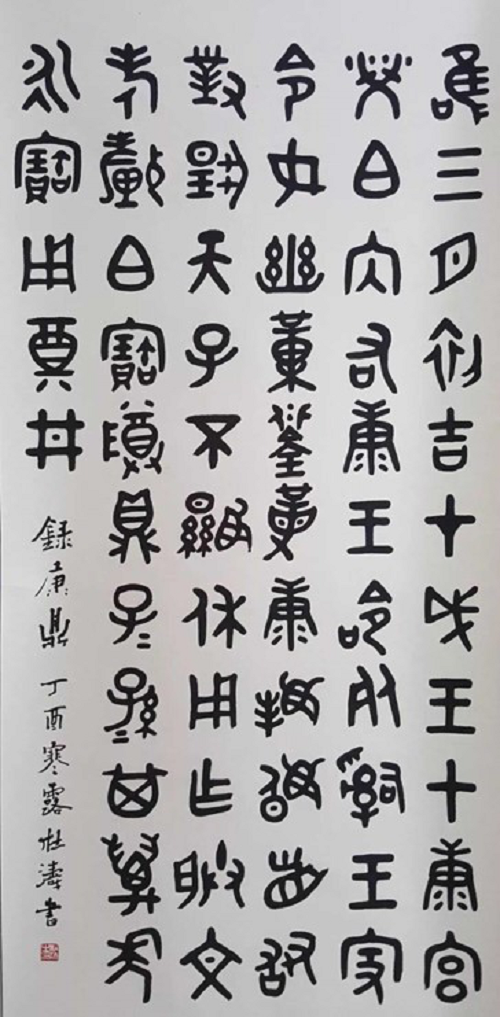 隹三月初吉甲戌王才康宮
榮白內右康王命死𤔲王家
令女幽黃鋚革康拜𩒨首敢
對揚天子不顯休用乍朕文
考釐白寶尊鼎子=孫=其萬年
永寶用奠井
錄康鼎 丁酉寒露 濤書